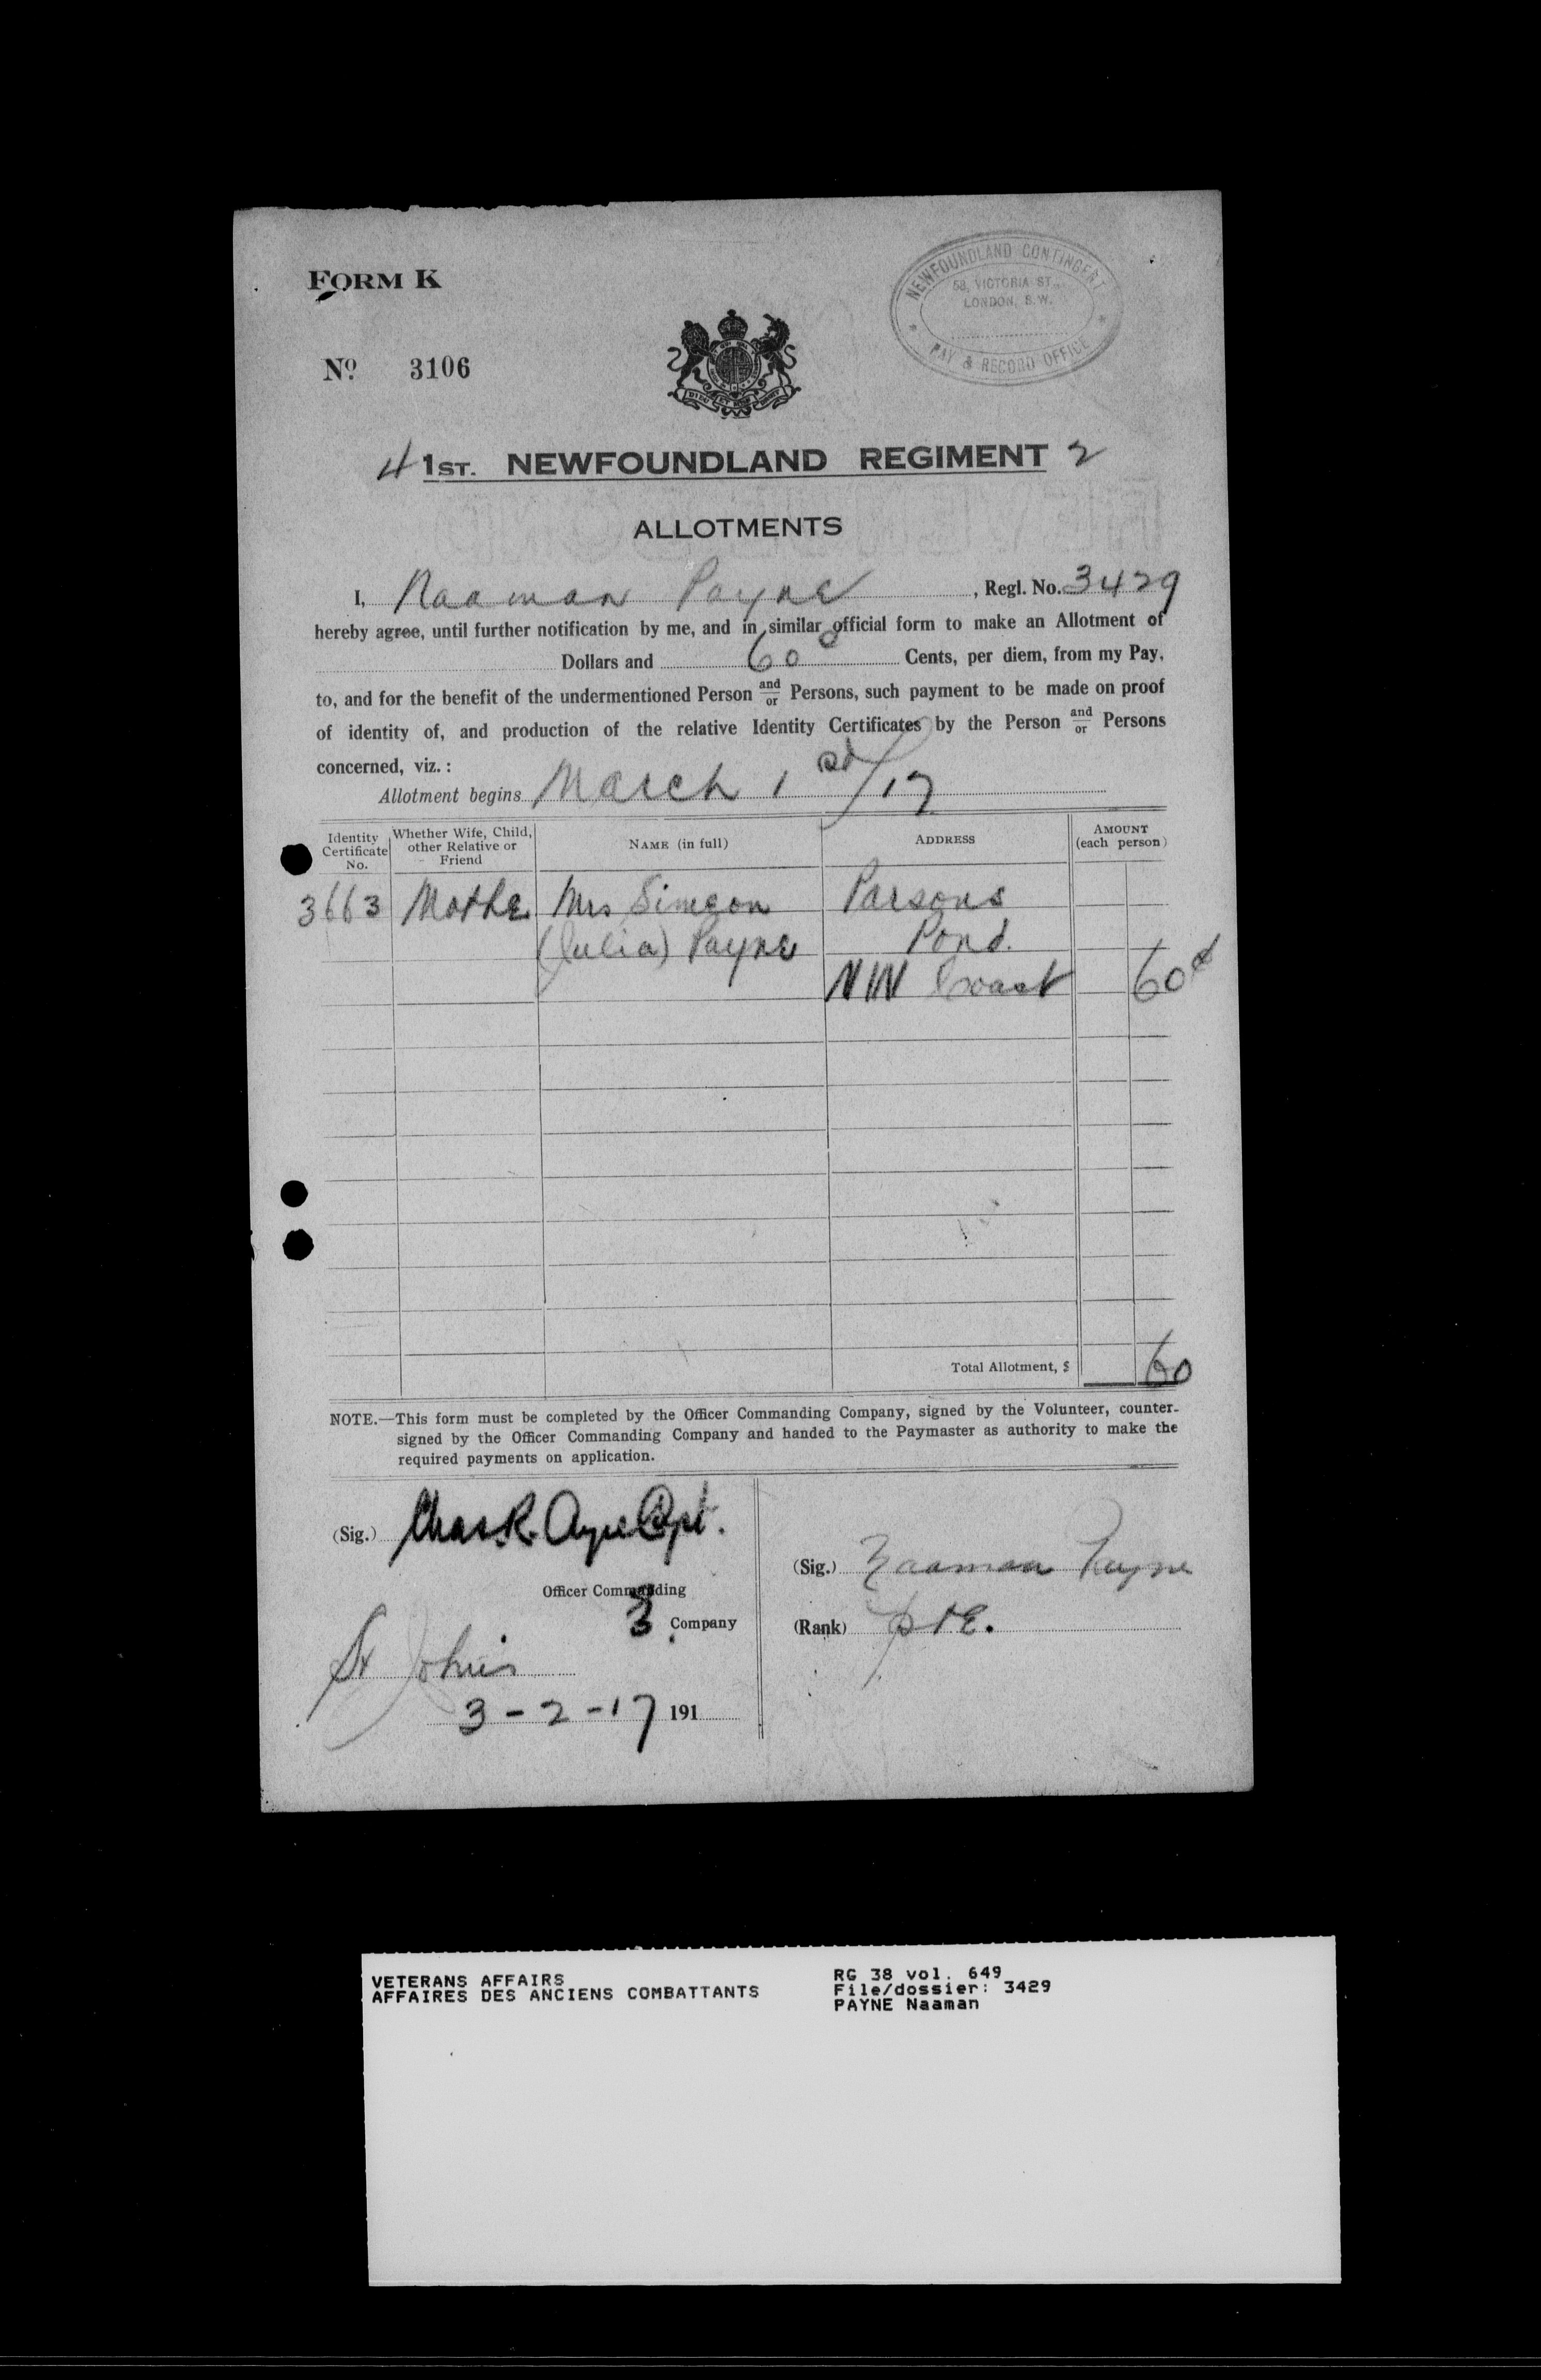 FORM K
NEWFOUNDLAND CONTINGENT
58, VICTORIA ST.,
LONDON, S.W.
PAY & RECORD OFFICE
No. 3106
4 1ST. NEWFOUNDLAND REGIMENT 2
ALLOTMENTS
I, Naaman Payne, Regl. No. 3429
hereby agree, until further notification by me, and in similar official form to make an Allotment of
Dollars and 60 Cents, per diem, from my Pay,
to, and for the benefit of the undermentioned Person and/or Persons, such payment to be made on proof
of identity of, and production of the relative Identity Certificates by the Person and/or Persons
concerned, viz.:
Allotment begins March 1st/17
Identity Certificate No. Whether Wife, Child, other Relative or Friend NAME (in full) ADDRESS AMOUNT (each person)
3663 Mothe Mrs Simeon Parsons
(Julia) Payne Pond.
NW Coast 60¢
Total Allotment, $ 60
NOTE.—This form must be completed by the Officer Commanding Company, signed by the Volunteer, counter-
signed by the Officer Commanding Company and handed to the Paymaster as authority to make the
required payments on application.
(Sig.) Chas. R. Ayre Capt.
Officer Commanding
3 Company
St Johns
3-2-17 191
(Sig.) Naaman Payne
(Rank) pte.
VETERANS AFFAIRS
AFFAIRES DES ANCIENS COMBATTANTS
RG 38 vol. 649
File/dossier: 3429
PAYNE Naaman